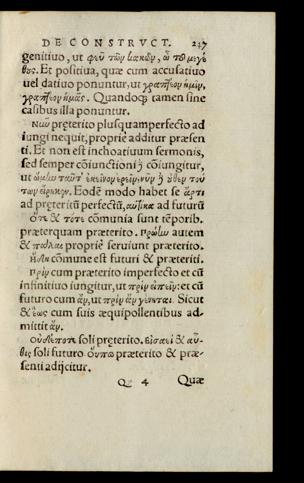 DE CONSTRVCT. 237
genitiuo, ut φεῦ τῶν κακῶν, ὦ τοῦ μεγέ
θους. Et positiua, quæ cum accusatiuo
uel datiuo ponuntur, ut ἡμῖν,
ἡμᾶς. Quandoq; tamen sine
casibus illa ponuntur.
νῦν pręterito plusquamperfecto ad
iungi nequit, proprie additur præsen
ti. Et non est inchoatiuum sermonis,
sed semper cōiunctioni ꝫ cōiungitur,
ut
τῶν Eodē modo habet se ἄρτι
ad pręteritū perfectū, αὐτίκα ad futurū
ὅτε & τότε cōmunia sunt tēporib.
præterquam præterito. πρώην autem
& πάλαι proprie seruiunt præterito.
ἤδη cōmune est futuri & præteriti.
πρὶν cum præterito imperfecto et cū
infinitiuo iungitur, ut πρὶν εἰπεῖν: et cū
futuro cum ἄν, ut πρὶν ἂν γένηται. Sicut
& ἕως cum suis æquipollentibus ad-
mittit ἄν.
οὐδέποτε soli pręterito. εἰσαεὶ & αὖ-
θις soli futuro. οὔπω præterito & præ-
senti adijcitur.
Q 4 Quæ